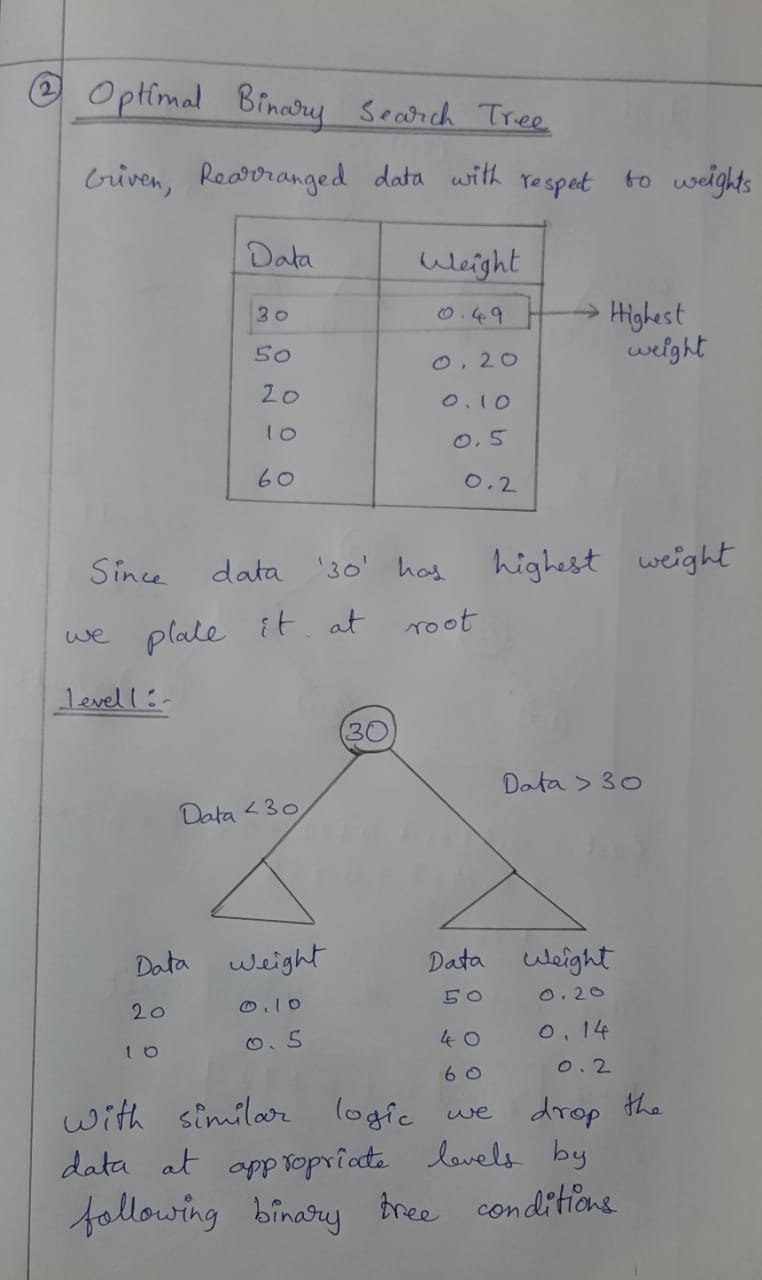 ② Optimal Binary Search Tree
Given, Rearranged data with respect to weights
Data Weight
30 0.49 → Highest weight
50 0.20
20 0.10
10 0.5
60 0.2
Since data '30' has highest weight
we place it at root
level 1 :-
30
Data < 30 Data > 30
Data Weight Data Weight
20 0.10 50 0.20
10 0.5 40 0.14
60 0.2
With similar logic we drop the
data at appropriate levels by
following binary tree conditions